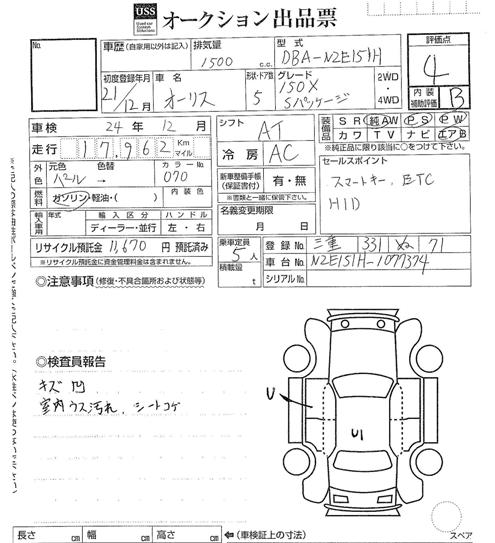 USS
Used car System Solutions
オークション出品票
No.
車歴 (自家用以外は記入)
排気量
1500 c.c.
型式
DBA-NZE151H
評価点
4
初度登録年月
21/12月
車名
オーリス
形状・ドア数
5
グレード
150X
Sパッケージ
2WD
・
4WD
内装
補助評価
B
車検
24年 12月
シフト
AT
装備品
SR 純AW PS PW
カワ TV ナビ エアB
※純正品に限り該当に○をつけて下さい。
走行
17,962 Km
マイル
冷房
AC
セールスポイント
スマートキー、ETC
HID
外色
元色
パール
色替
→
カラーNo.
070
燃料
ガソリン・軽油・( )
内装色
新車整備手帳
(保証書付)
有・無
※書類と一緒に保管下さい。
輸入車用
年式
輸入区分
ディーラー・並行
ハンドル
左・右
名義変更期限
月 日
リサイクル預託金 11,670 円 預託済み
※リサイクル預託金に資金管理料金は含まれません。
乗車定員
5人
積載量
t
登録No.
三重 3311 71
車台No.
NZE151H-1077374
シリアルNo.
◎注意事項 (修復・不具合箇所および状態等)
◎検査員報告
キズ 凹
室内ウス汚れ、シートコゲ
U
U1
長さ cm
幅 cm
高さ cm
(車検証上の寸法)
スペア